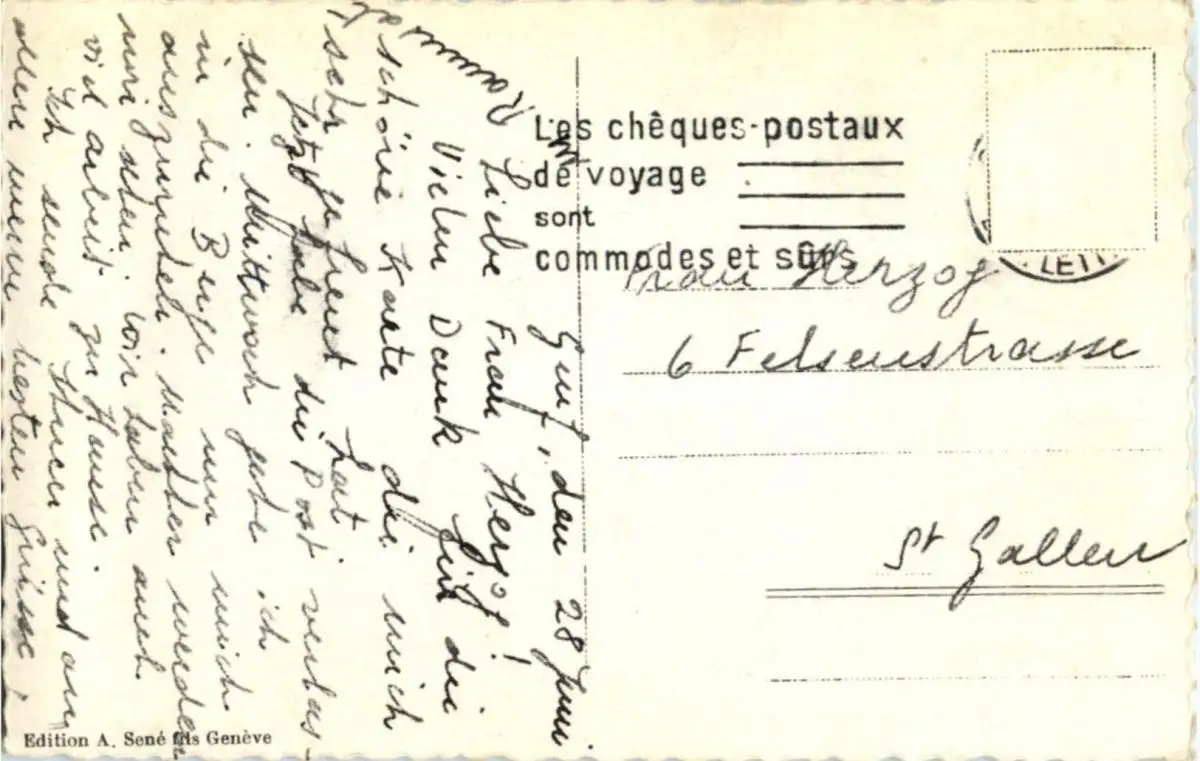 Genf, den 28 Juni
Liebe Frau Herzog!
Vielen Dank für die
schöne Karte die mich
sehr gefreut hat
Jetzt habe die Post verlas-
sen. Mittwoch gehe ich
in die Berge um mich
auszuruhen. nachher werden
wir sehen wir haben auch
viel arbeit zu Hause
Ich sende Ihnen und an
allen meine besten Grüsse
Les chèques-postaux
de voyage
sont
commodes et sûrs
LETT
Frau Herzog
6 Felsenstrasse
St Gallen
Edition A. Sené fils Genève